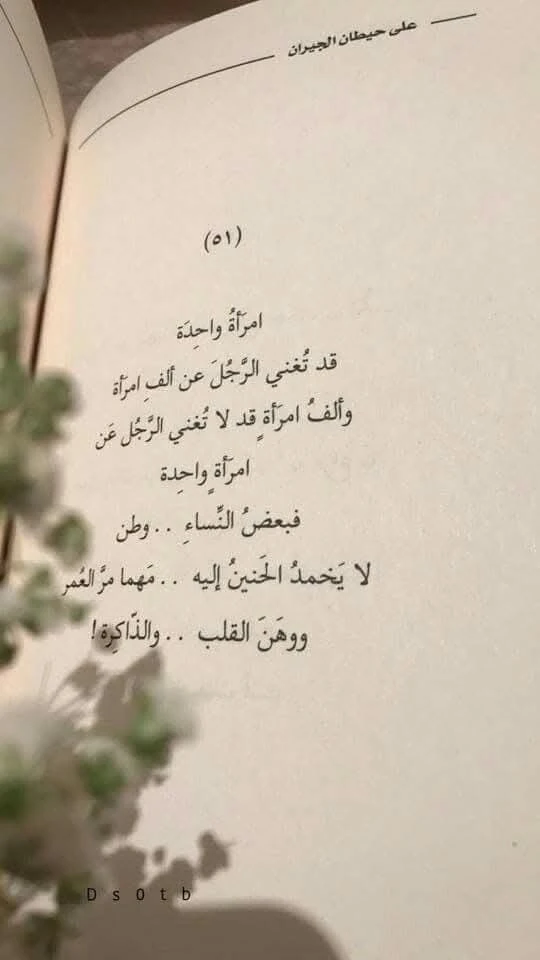 على حيطان الجيران
(٥١)
امرَأةُ واحِدَة
قد تُغني الرَّجُلَ عن ألفِ امرَأة
وألفُ امرَأةٍ قد لا تُغني الرَّجُل عَن
امرَأةٍ واحِدة
فبعضُ النِّساءِ .. وطن
لا يَخمدُ الحَنينُ إليه .. مَهما مرَّ العُمر
ووهَنَ القلب .. والذّاكِرة!
D s 0 t b